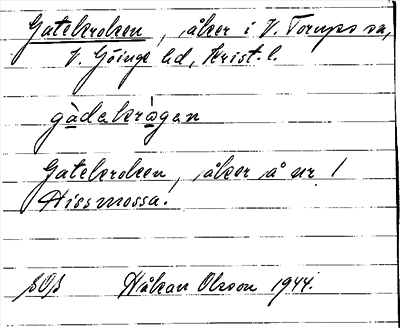 Gatekroken, åker i V. Torups sn,
V. Göinge hd, Krist. l.
gàdekrògen
Gatekroken, åker å nr 1
Hissmossa.
Håkan Olsson 1944.